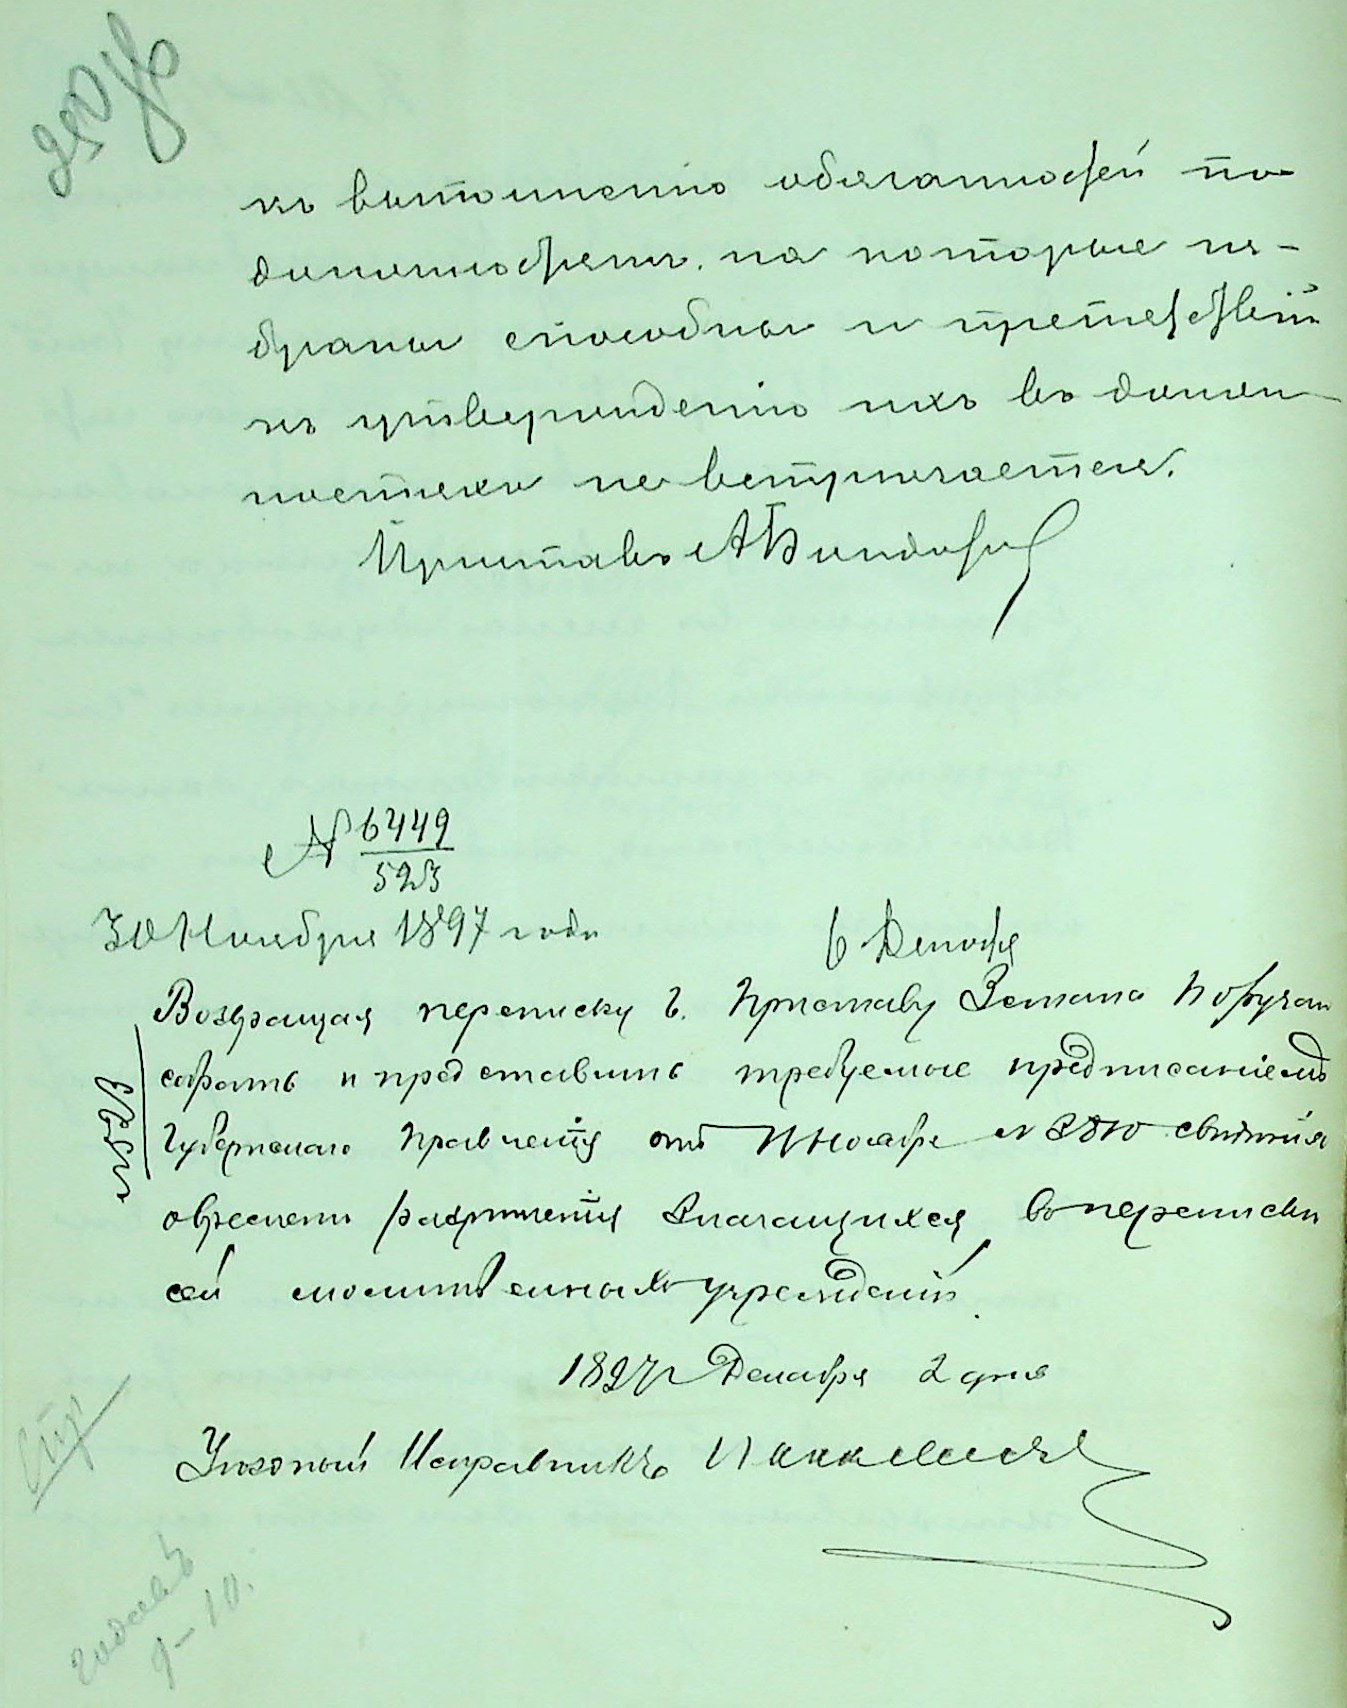 къ выполненію обязанностей по
должностямъ, на которые из-
браны способны и препятствій
къ утвержденію ихъ въ долж-
ностяхъ не встрѣчается.
Приставъ А
№ 6449
523
30 Ноября 1897 года
6 Декабря
Возвращая переписку г. Приставу 2 стана поручаю
собрать и представить требуемые предписаніемъ
Губернскаго Правленія отъ 11 Ноября № свѣдѣнія
о времени разрѣшенія значащихся въ переписки
сей молитвенныхъ учрежденій.
1897 г Декабря 2 дня
Уѣздный Исправникъ
№ 523